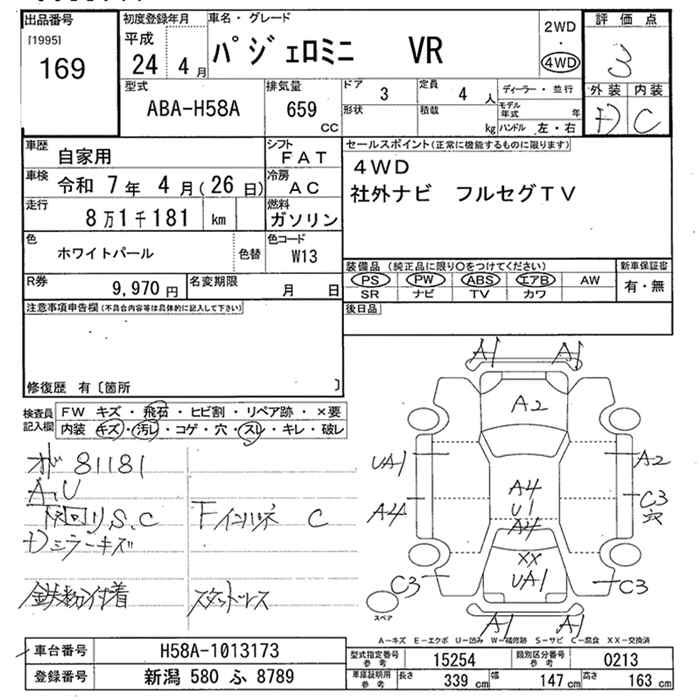 出品番号
[1995]
169
初度登録年月
平成
24 4 月
車名・グレード
パジェロミニ VR
2WD
・
4WD
評価点
3
外装 内装
D C
型式
ABA-H58A
排気量
659
CC
ドア 3
形状
定員 4 人
積載 kg
ディーラー・並行
モデル年式 年
ハンドル 左・右
車歴
自家用
シフト
FAT
車検
令和 7 年 4 月 ( 26 日)
冷房
AC
走行
8 万 1 千 181 km
燃料
ガソリン
色
ホワイトパール
色替
色コード
W13
R券
9,970 円
名変期限
月 日
セールスポイント(正常に機能するものに限ります)
4WD
社外ナビ フルセグTV
装備品 (純正品に限り○をつけてください)
PS PW ABS エアB AW
SR ナビ TV カワ
新車保証書
有・無
後日品
注意事項申告欄(不具合内容等は具体的に記入して下さい)
修復歴 有 〔箇所 〕
検査員
記入欄
FW キズ・飛石・ヒビ割・リペア跡・×要
内装 キズ・汚レ・コゲ・穴・スレ・キレ・破レ
オド 81181
A、U
リS、C
Fインハネ C
ミラーキズ
鉄粉付着
スタッドレス
A1 A1
A2
UA1
A2
A4
A4
U1
A4
C3
穴
XX
UA1
C3
C3
A1 A1
スペア
A−キズ E−エクボ U−凹み W−補修跡 S−サビ C−腐食 XX−交換済
車台番号
H58A-1013173
登録番号
新潟 580 ふ 8789
型式指定番号
参考
15254
類別区分番号
参考
0213
車庫証明用
参考
長さ 339 cm
幅 147 cm
高さ 163 cm